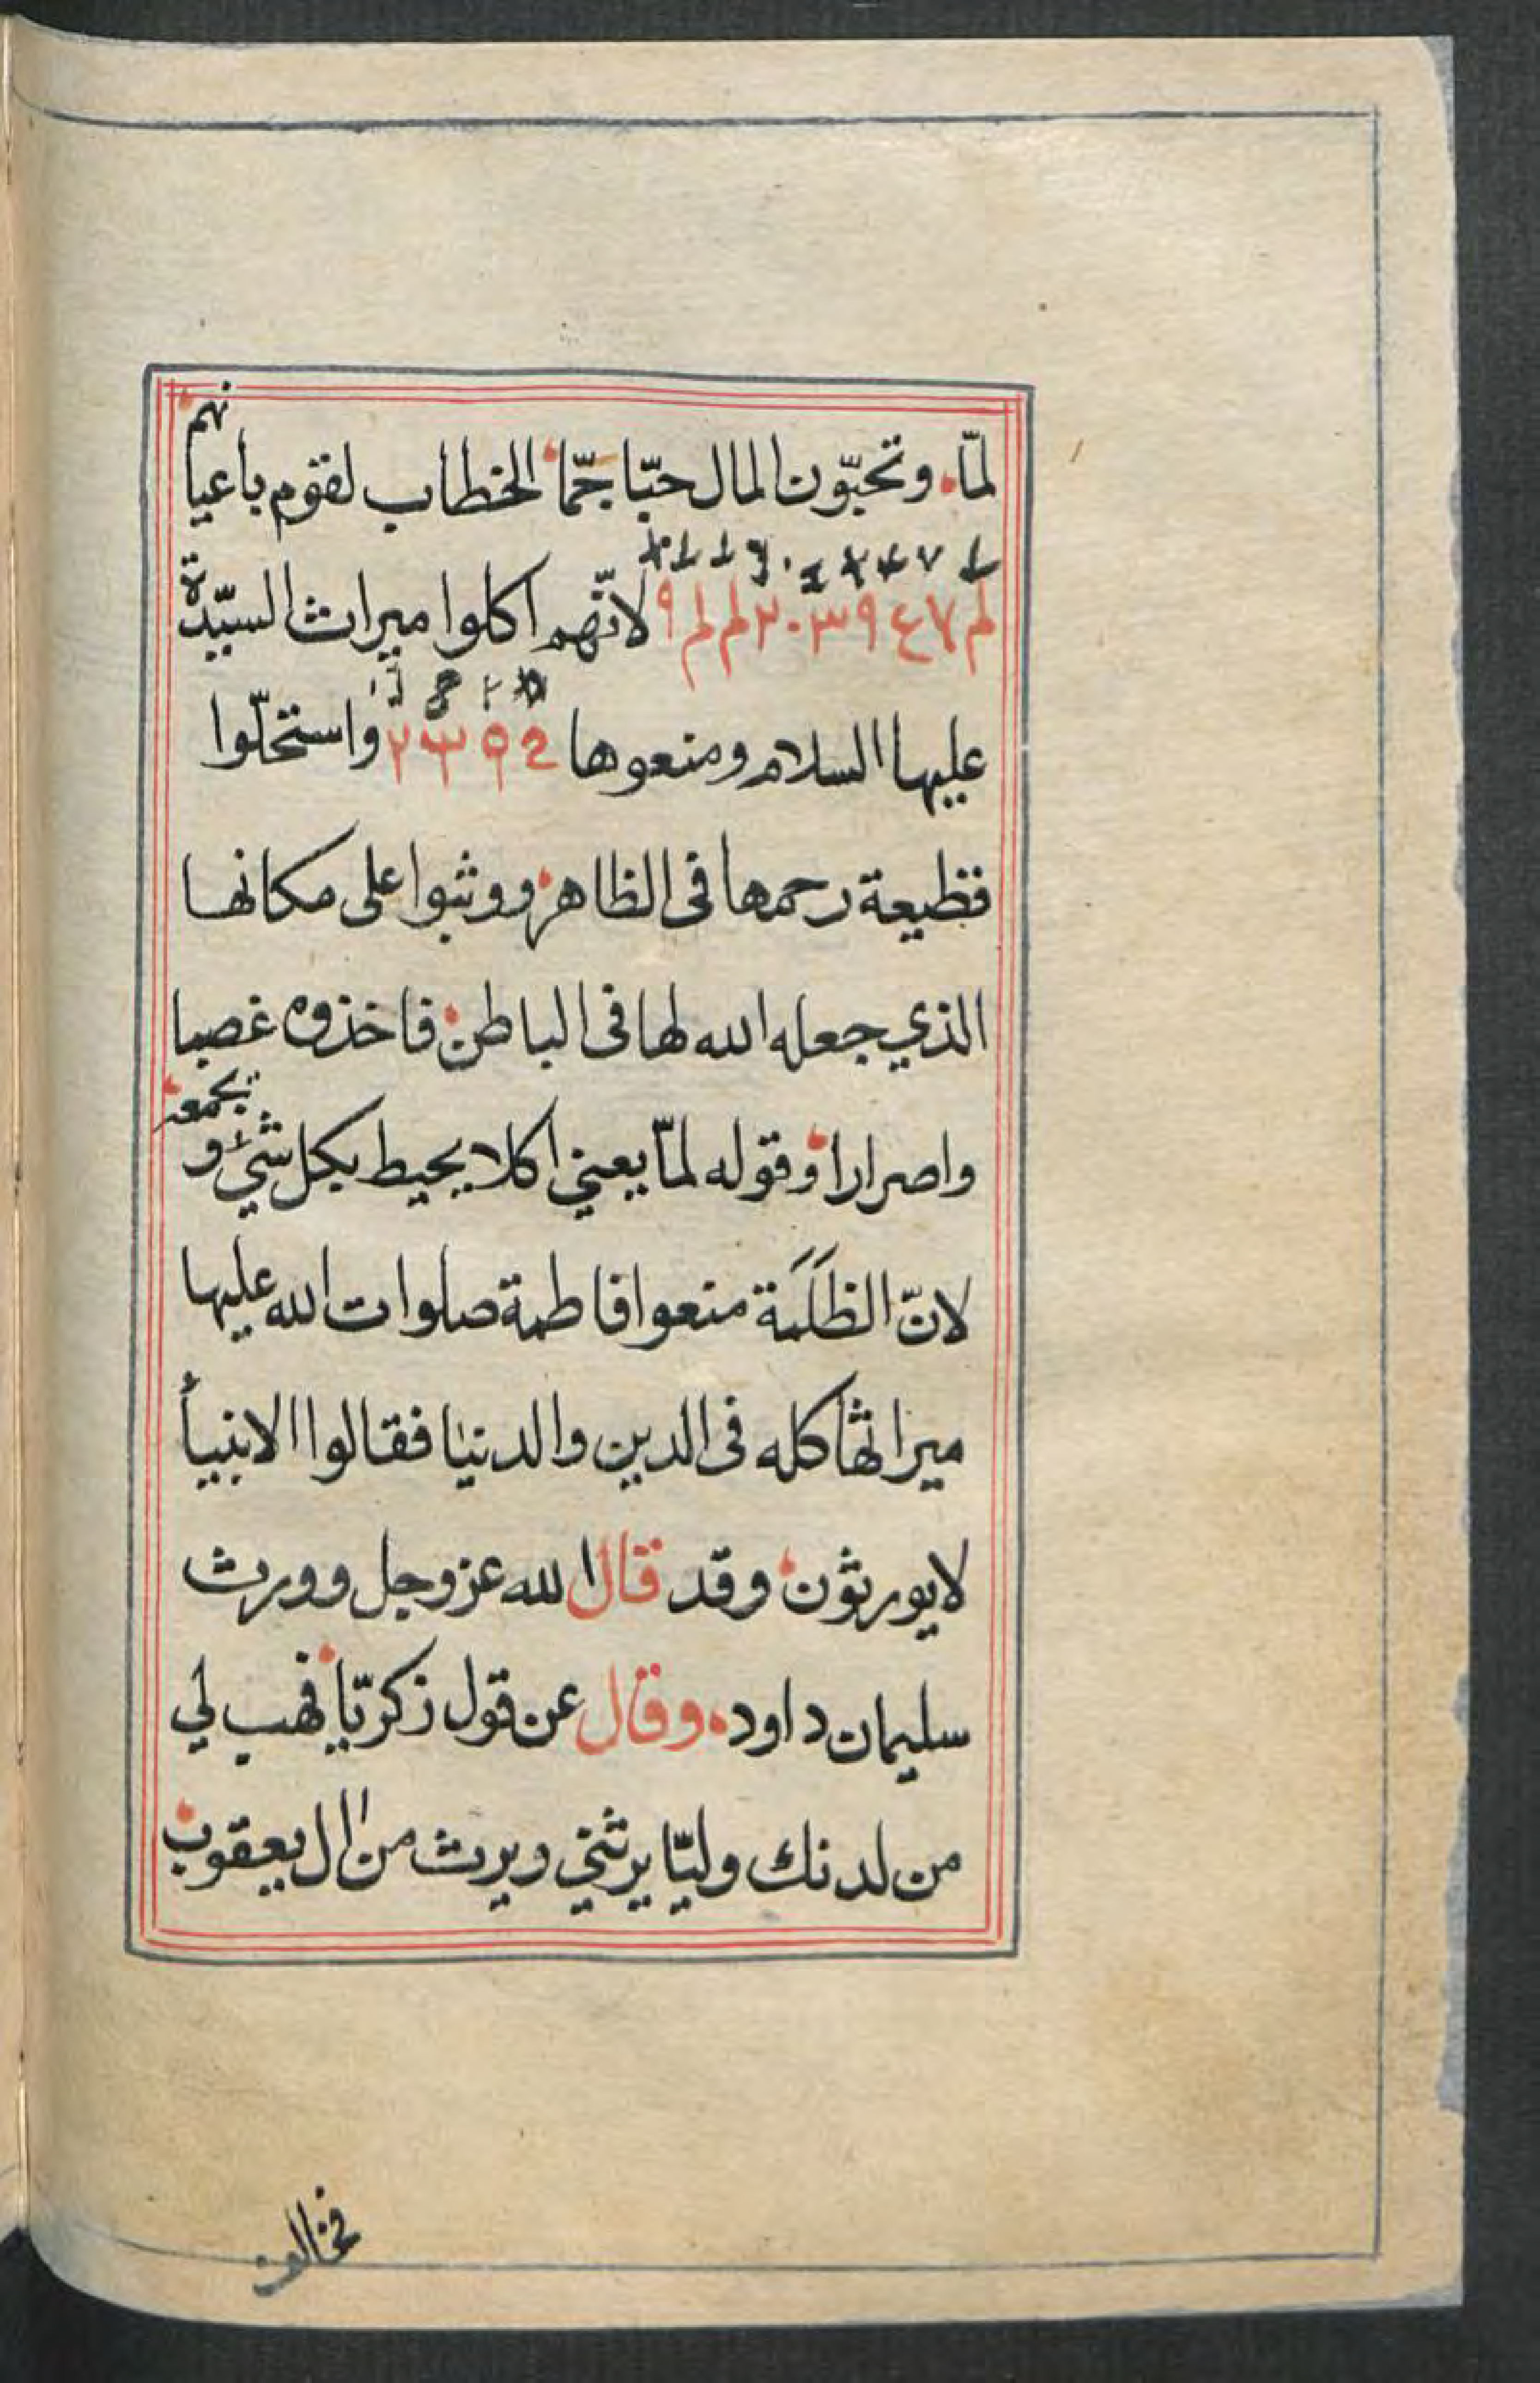 لمّا. وتحبّون المال حبّا جمّا الخطاب لقوم باعيانهم
لانّهم اكلوا ميراث السيّدة
عليها السلام ومنعوها واستحلّوا
قظيعة رحمها فى الظاهر ووثبوا على مكانها
الذي جعله الله لها فى الباطن فاخذوه غصبا
واصرارا وقوله لمّا يعني اكلا يحيط بكل شيء ويجمعه
لانّ الظلَمَة منعوا فاطمة صلوات الله عليها
ميراثها كله فى الدين والدنيا فقالوا الانبيأ
لا يورثون وقد قال الله عز وجل وورث
سليمان داود. وقال عن قول زكريّا فهب لي
من لدنك وليّا يرثني ويرث من ال يعقوب
فخالف